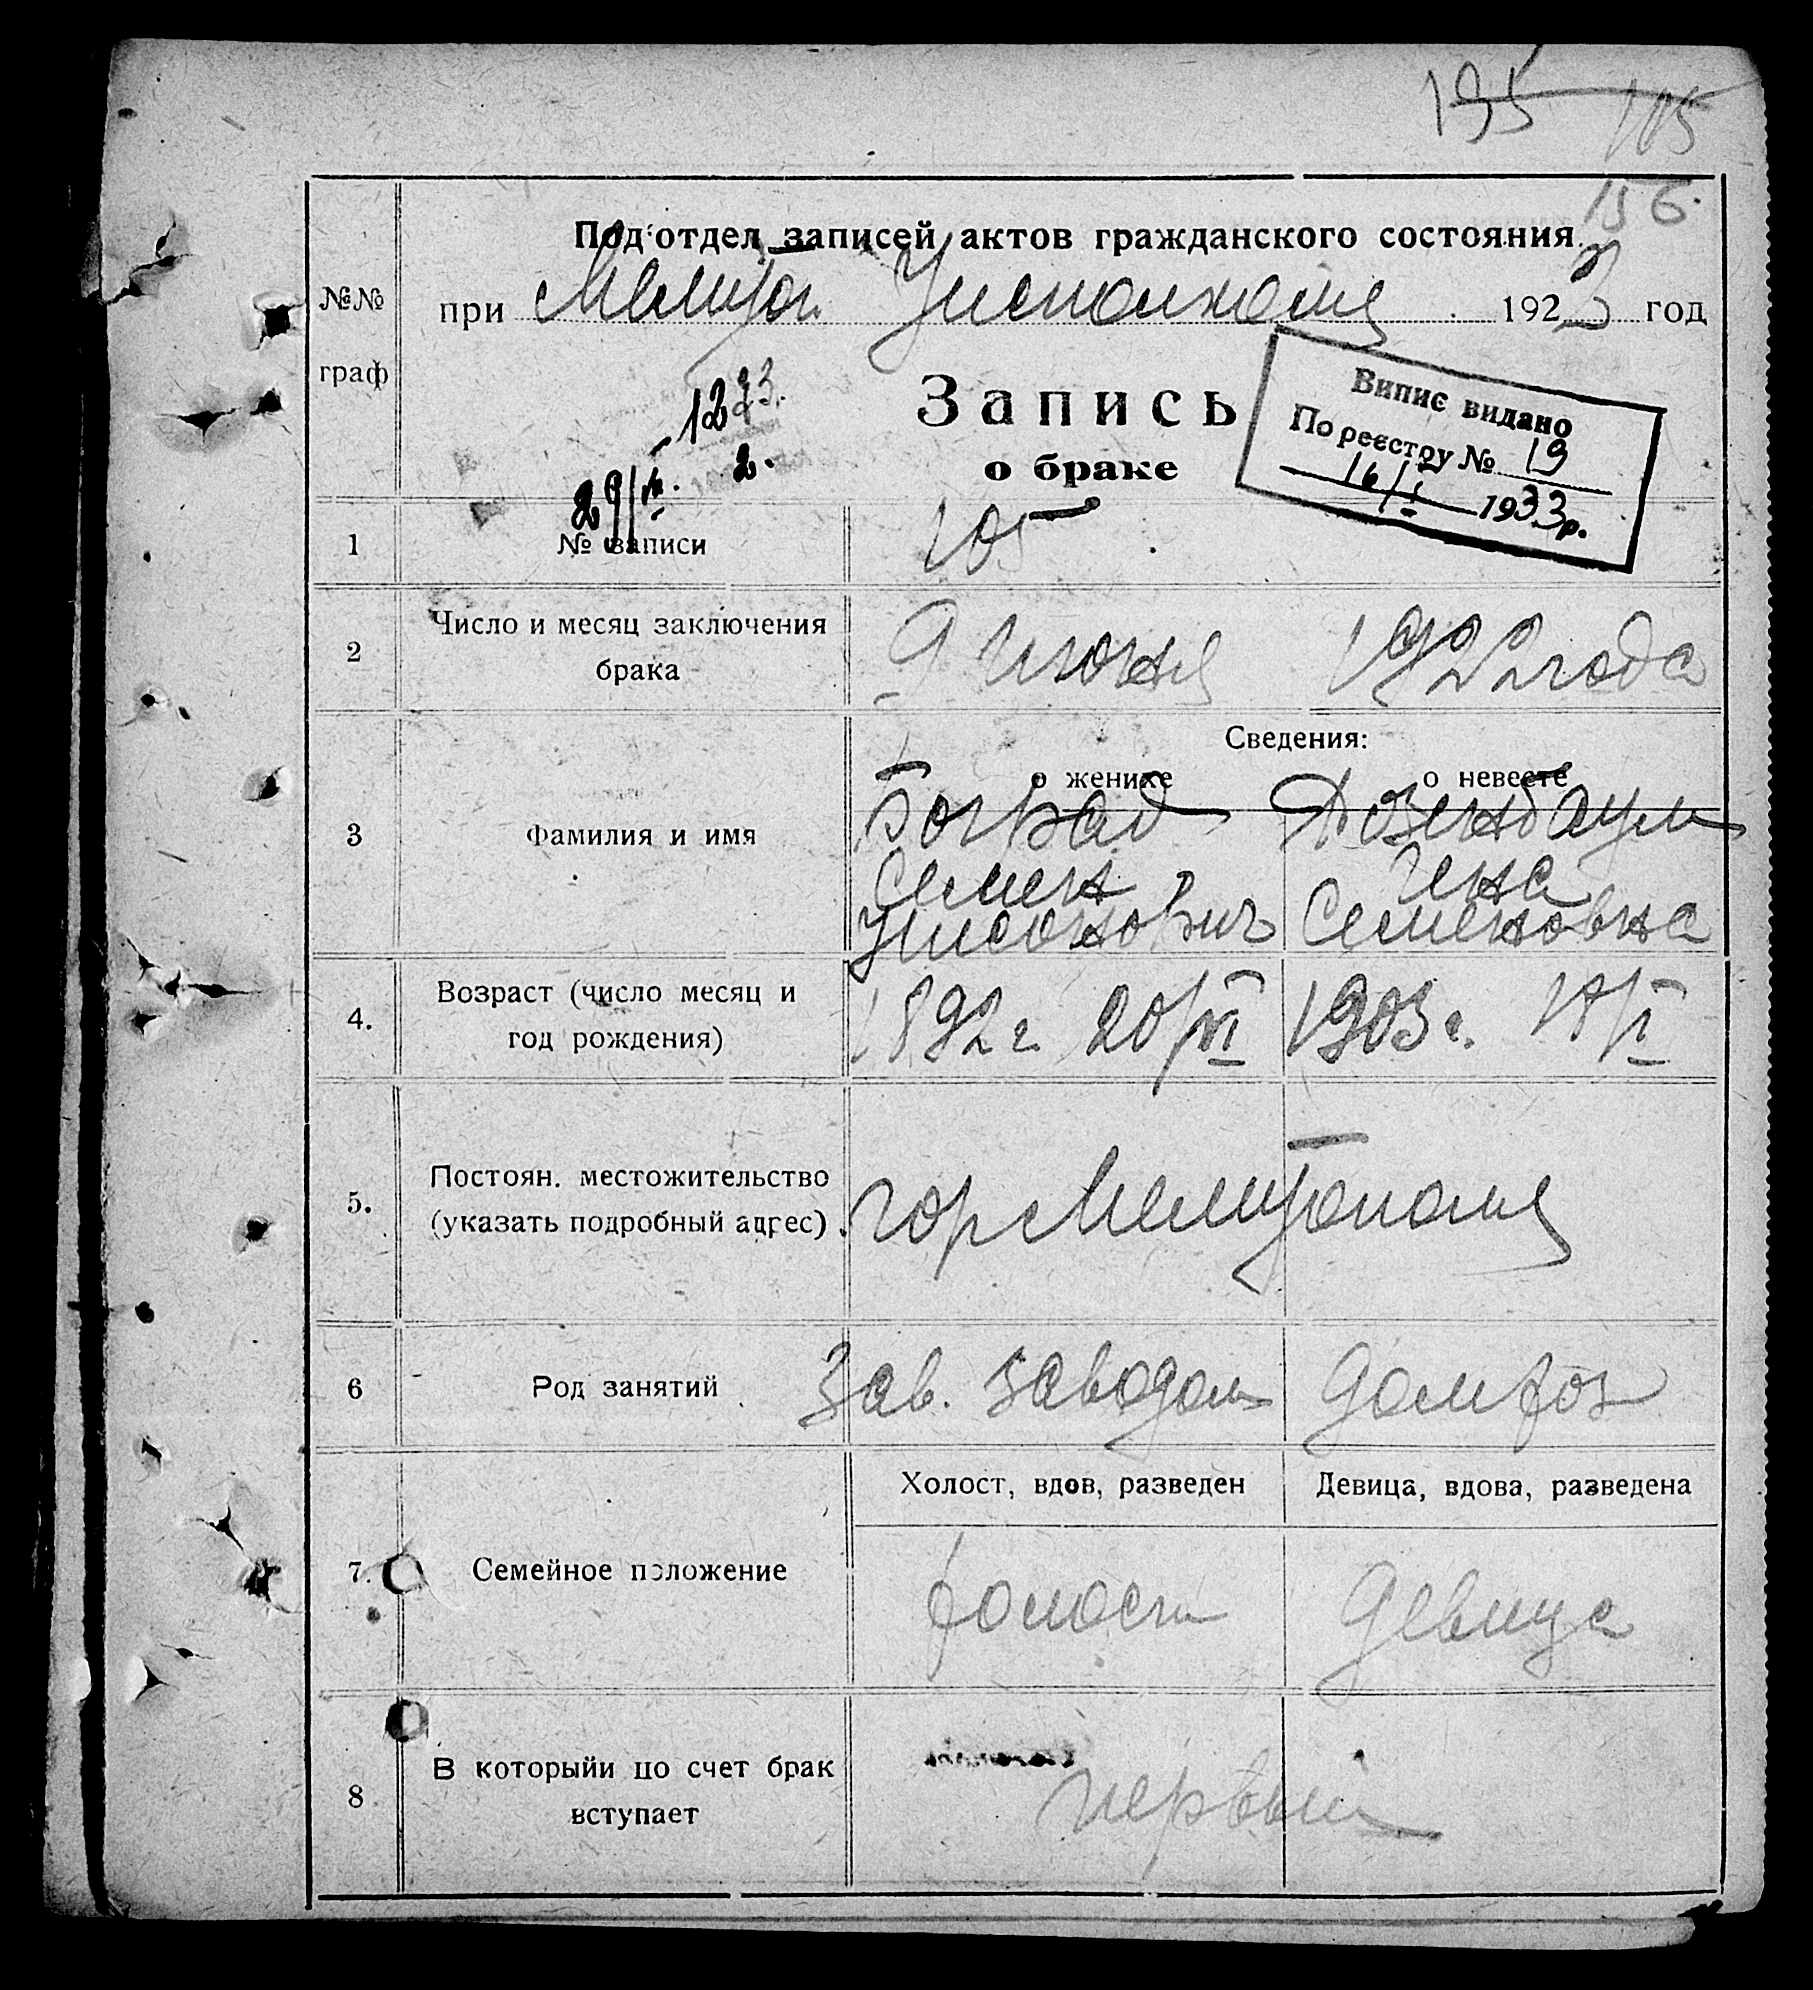 195 105
156.
Под'отдел записей актов гражданского состояния
№№ при Мелитоп. Исполкоме 1923 год
граф
Запись
о браке
Випис видано
По реєстру № 19
16/I 1933р.
1 № записи 105
2 Число и месяц заключения брака 9 Июня 1922 года
Сведения:
о женихе о невесте
3 Фамилия и имя Боград Розенбаум
Семен
Семеновна
4. Возраст (число месяц и 1892 г. 20/VI 1903 г.
год рождения)
Постоян. местожительство
5. (указать подробный адрес) гор Мелитополь
6 Род занятий Зав. заводом домхоз
Холост, вдов, разведен Девица, вдова, разведена
7. Семейное положение холост девица
В которыйи по счет брак
8 вступает первый